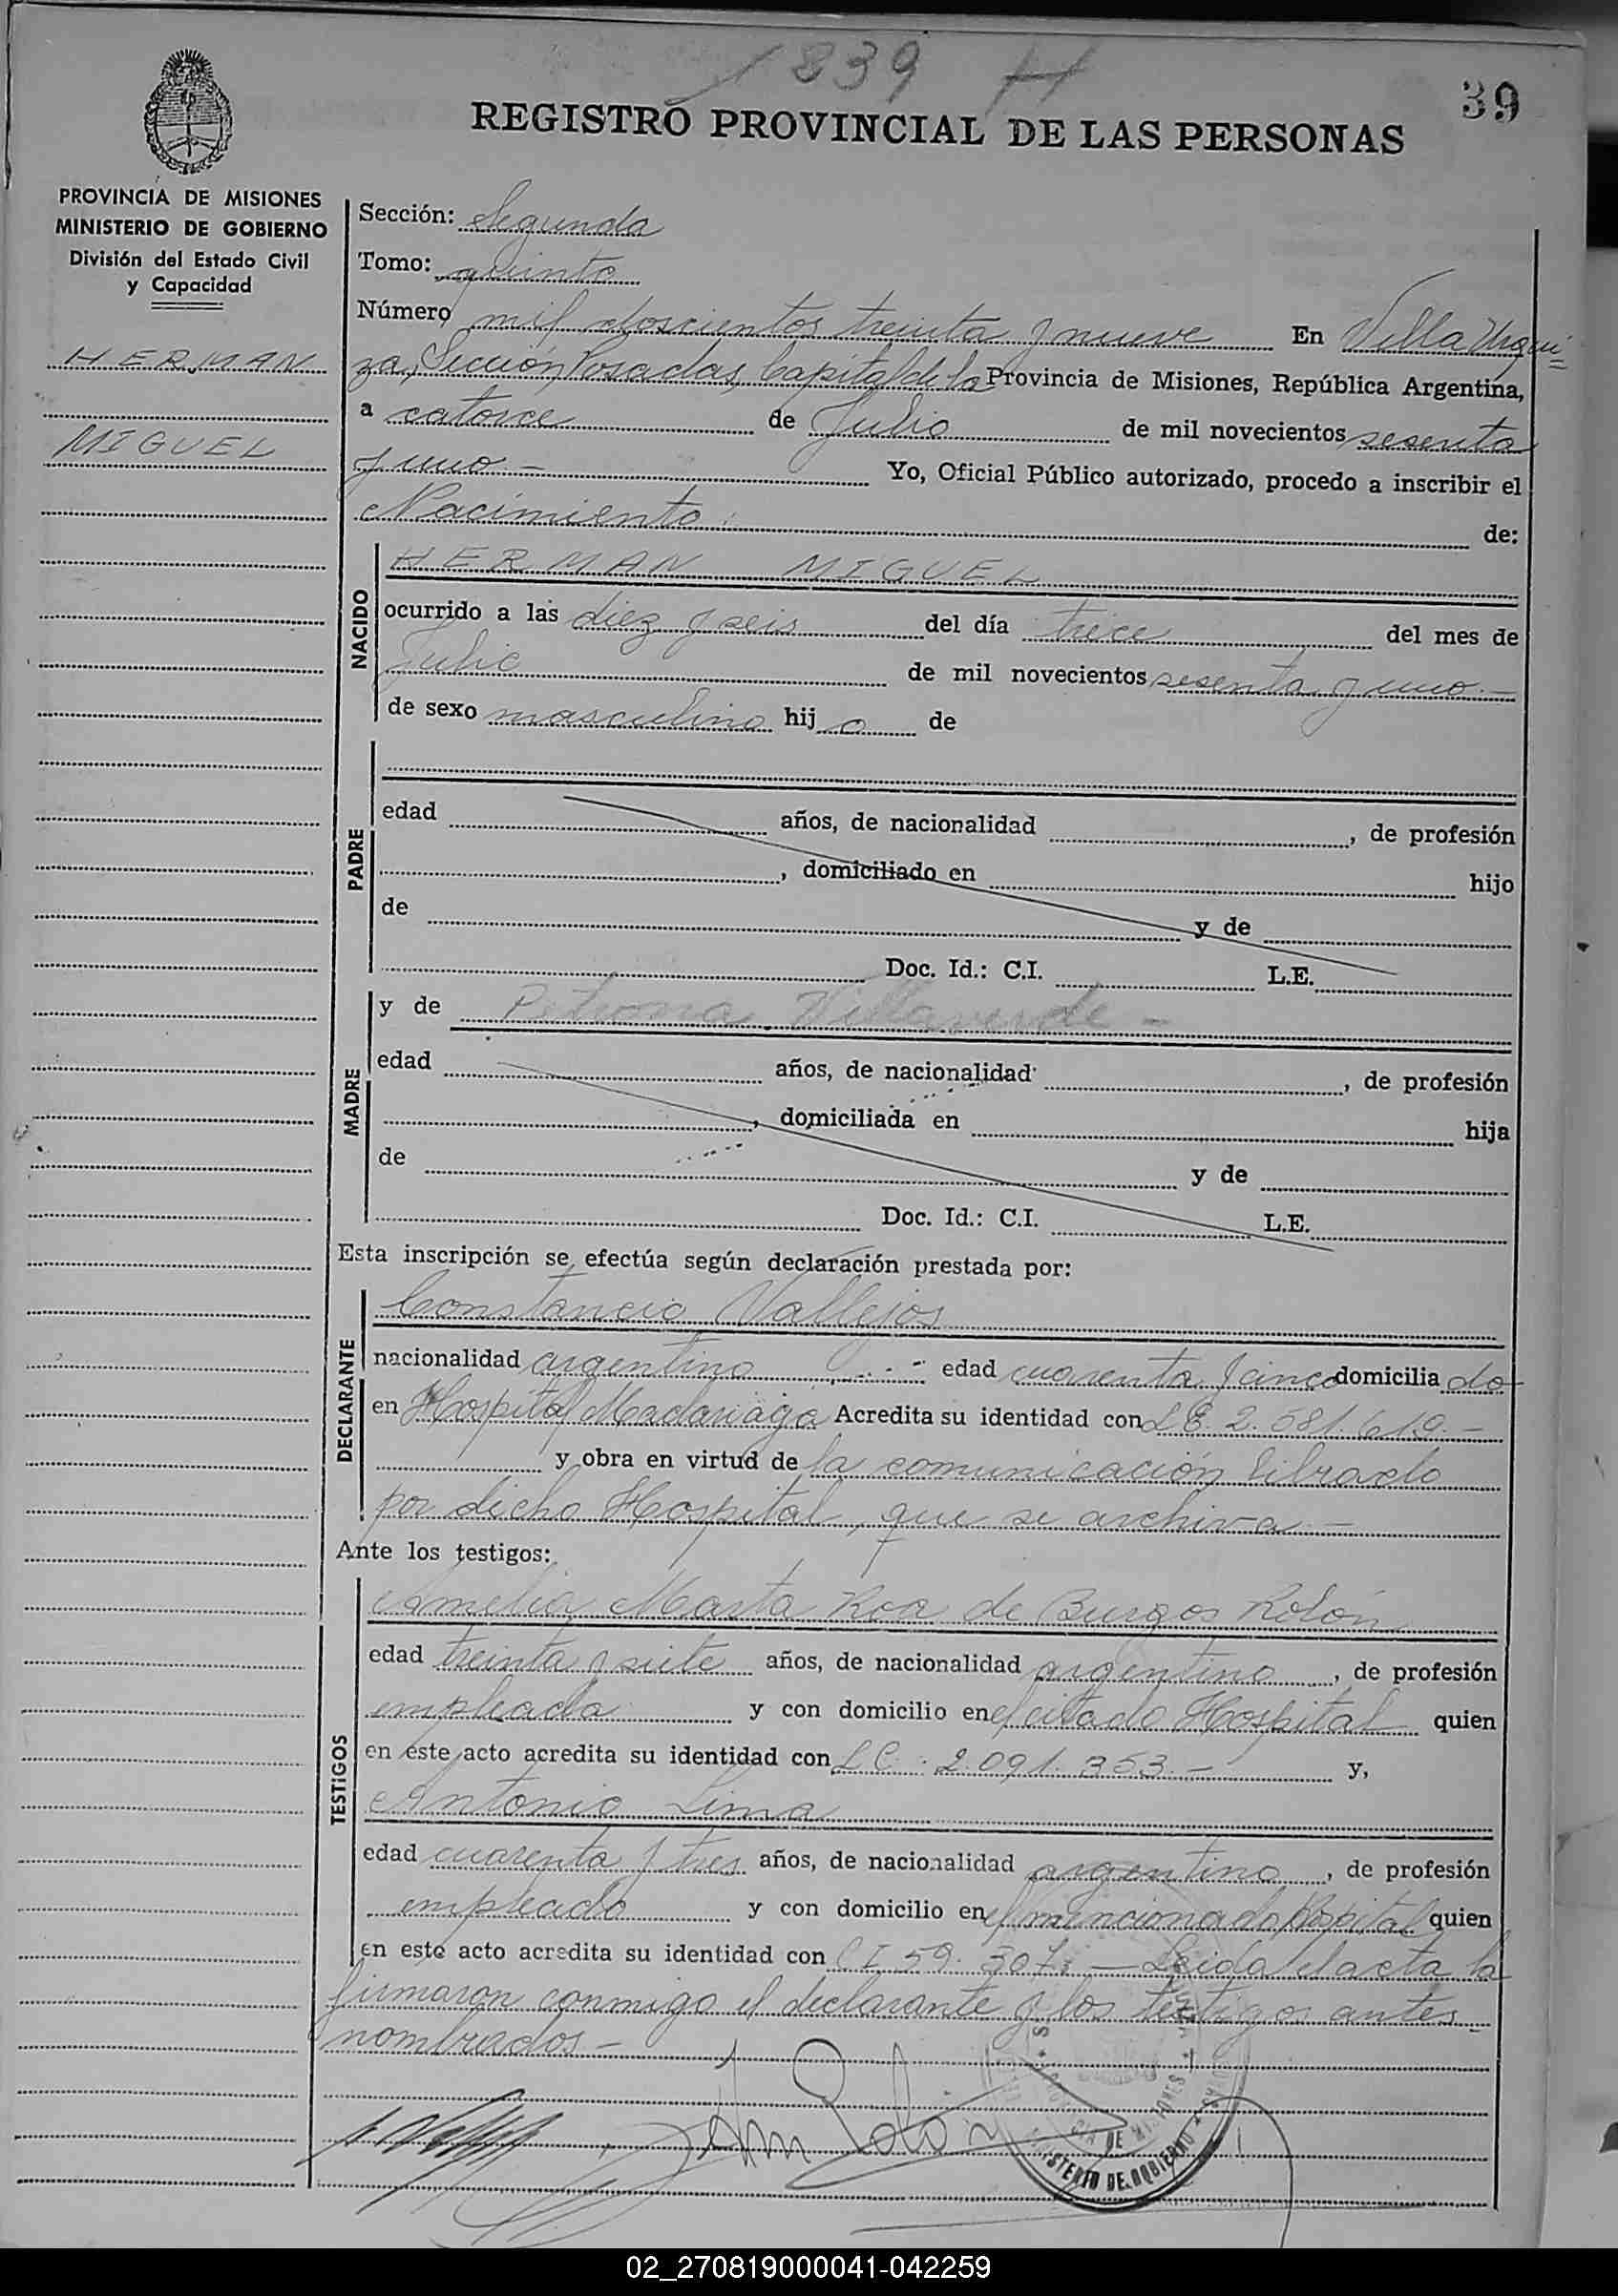 1839 H
39
REGISTRO PROVINCIAL DE LAS PERSONAS
PROVINCIA DE MISIONES
MINISTERIO DE GOBIERNO
División del Estado Civil
y Capacidad
HERMAN
MIGUEL
Sección: Segunda
Tomo: quinto
Número mil doscientos treinta y nueve En Villa Urqui=
za, Sección Posadas, Capital de la Provincia de Misiones, República Argentina,
a catorce de Julio de mil novecientos sesenta
y uno - Yo, Oficial Público autorizado, procedo a inscribir el
Nacimiento de:
NACIDO
HERMAN MIGUEL
ocurrido a las diez y seis del día trece del mes de
Julio de mil novecientos sesenta y uno.-
de sexo masculino hijo de
PADRE
edad años, de nacionalidad , de profesión
, domiciliado en hijo
de y de
Doc. Id.: C.I. L.E.
MADRE
y de Petrona Villaverde -
edad años, de nacionalidad , de profesión
, domiciliada en hija
de y de
Doc. Id.: C.I. L.E.
Esta inscripción se efectúa según declaración prestada por:
DECLARANTE
Constancio Vallejos
nacionalidad argentino edad cuarenta y cinco domiciliado
en Hospital Madariaga Acredita su identidad con L E. 2.581.619.-
y obra en virtud de la comunicación librado
por dicho Hospital, que se archiva.-
Ante los testigos:
TESTIGOS
Amelia Marta Roa de Burgos Rolón
edad treinta y siete años, de nacionalidad argentina, de profesión
empleada y con domicilio en el citado Hospital quien
en este acto acredita su identidad con L C. 2.091.353.- y,
Antonio Lima
edad cuarenta y tres años, de nacionalidad argentino, de profesión
empleado y con domicilio en el mencionado Hospital quien
en este acto acredita su identidad con C I 59.307.- Leída el acta la
firmaron conmigo el declarante y los testigos antes
nombrados.-
MINISTERIO DE GOBIERNO
02_270819000041-042259